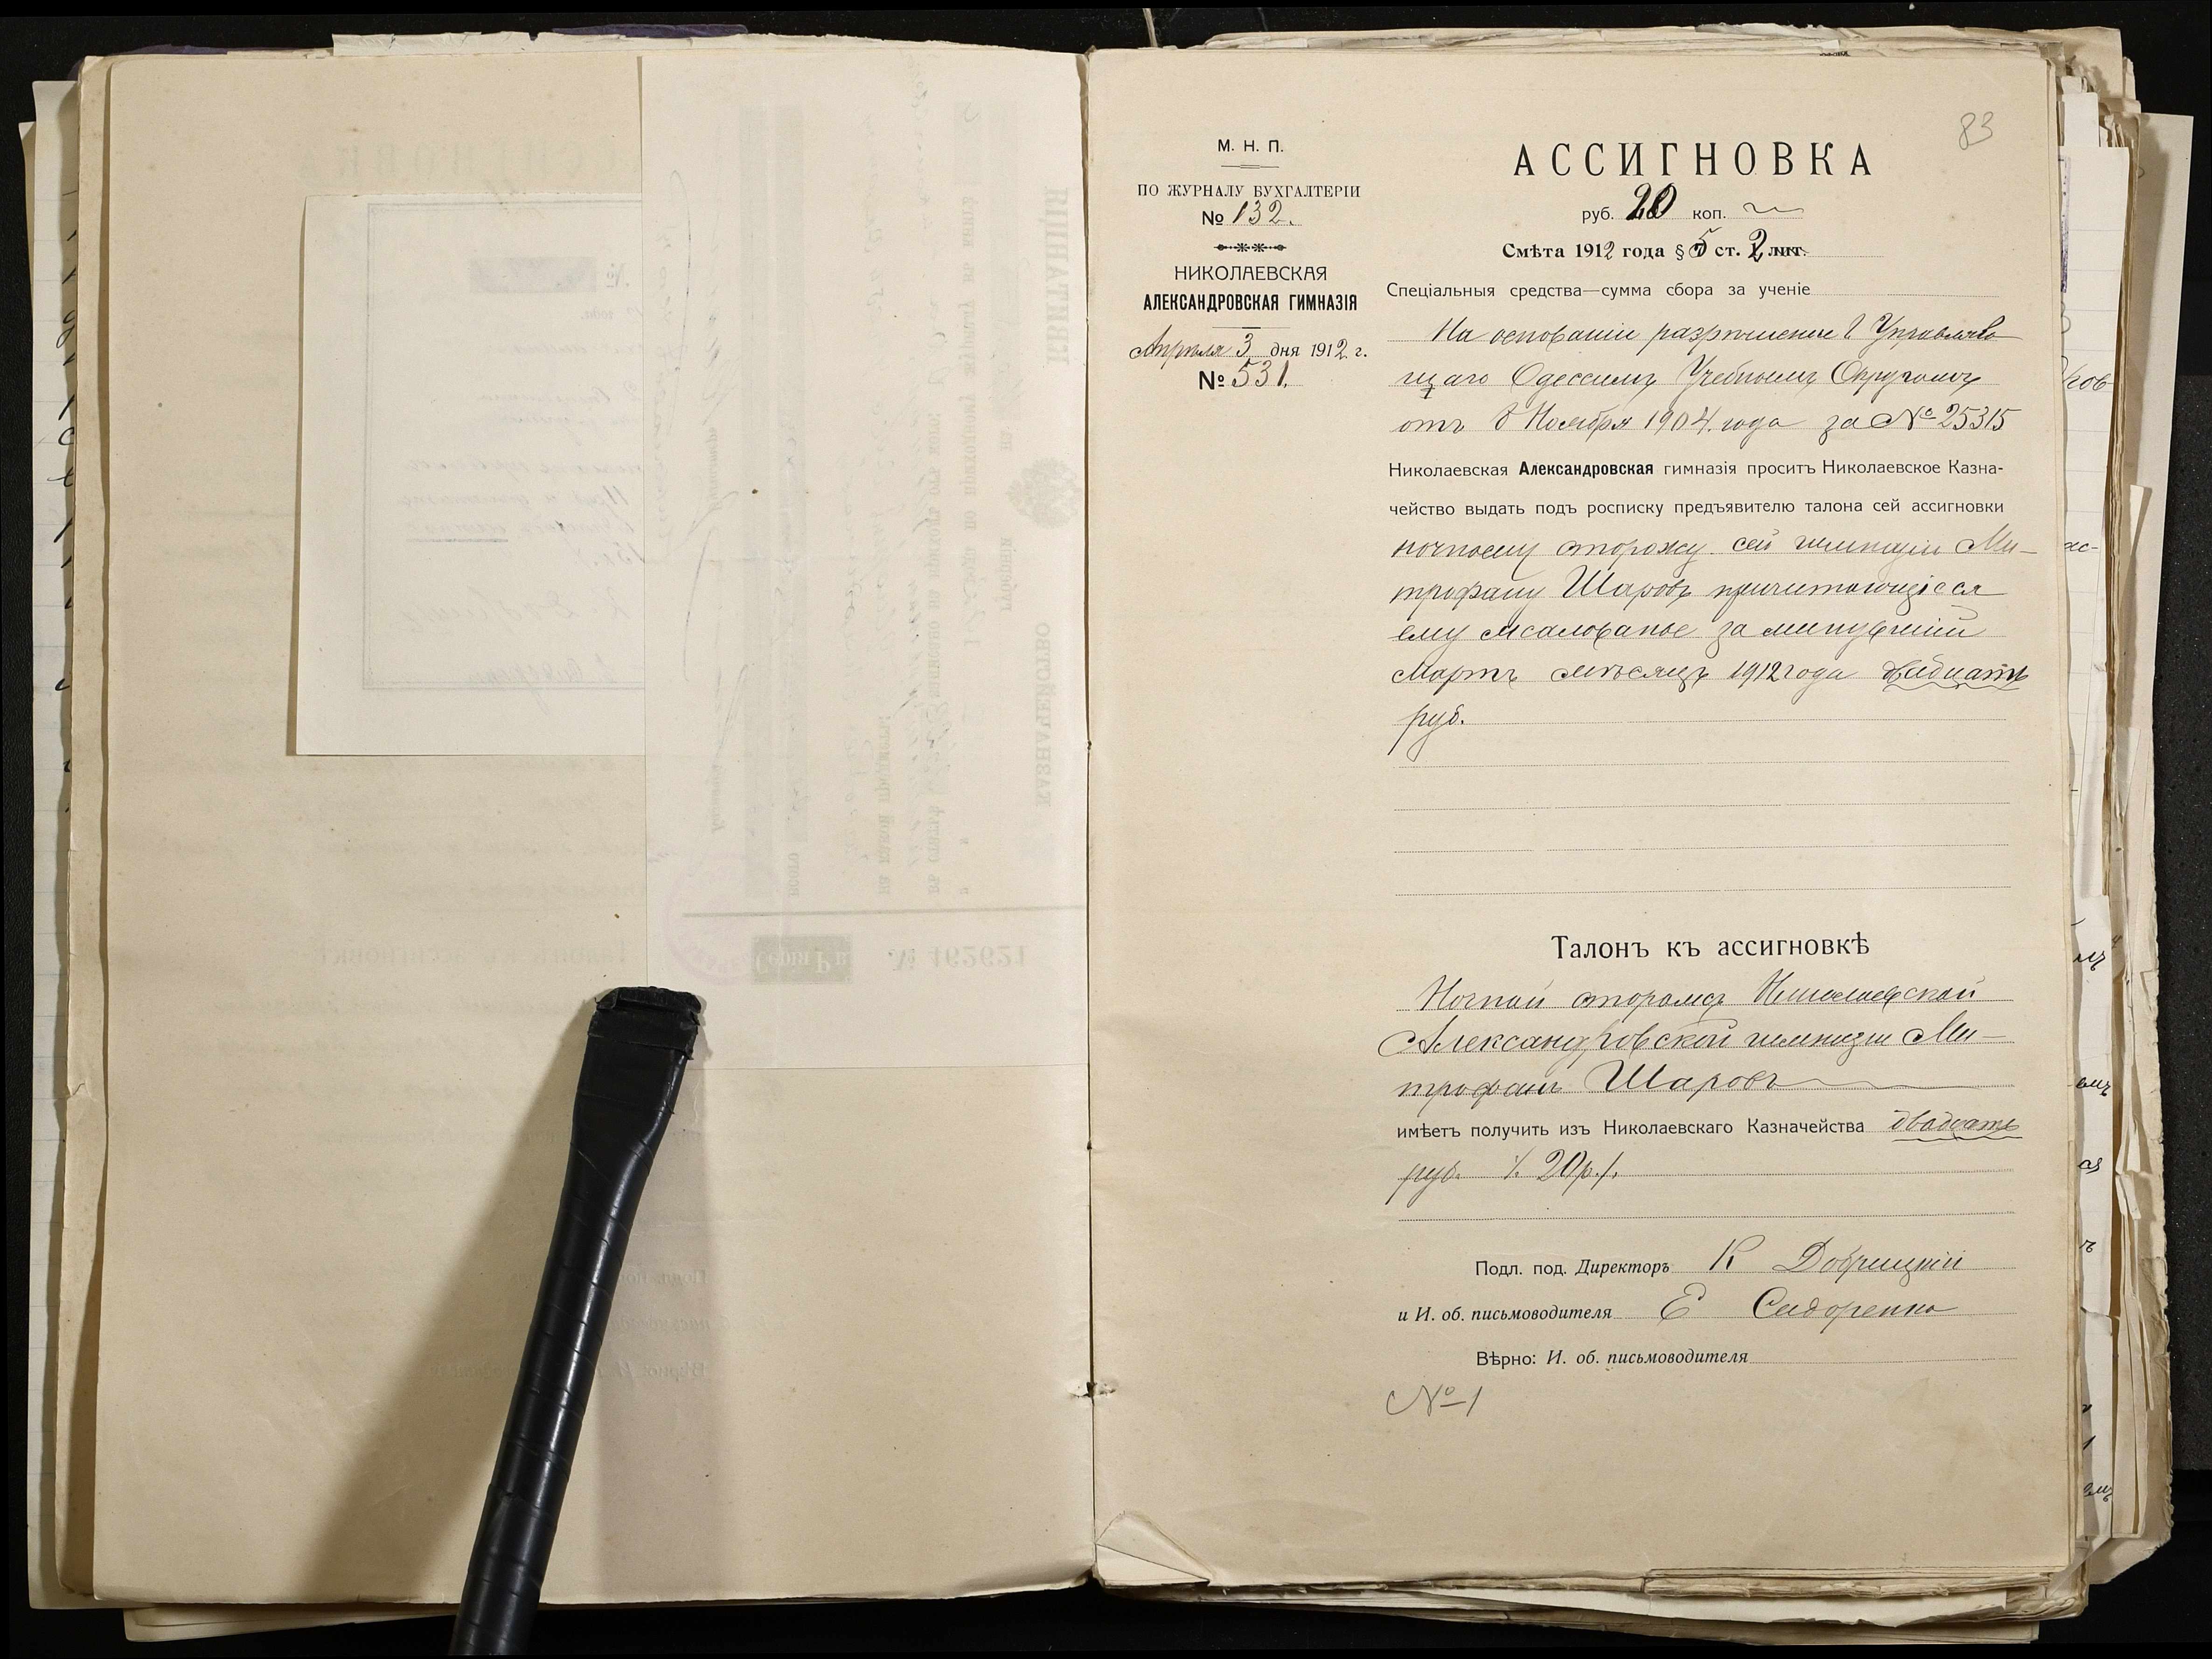 83
М. Н. П.
ПО ЖУРНАЛУ БУХГАЛТЕРІИ
№ 132.
НИКОЛАЕВСКАЯ
АЛЕКСАНДРОВСКАЯ ГИМНАЗІЯ
Апрѣля 3 дня 1912 г.
№ 531.
АССИГНОВКА
руб. 20 коп. ~
Смѣта 1912 года § 5 ст. 2 лит.
Спеціальныя средства—сумма сбора за ученіе
На основаніи разрѣшенія Г Управляю
щаго Одесскимъ Учебнымъ Округомъ
отъ 8 Ноября 1904 года за № 25315
Николаевская Александровская гимназія проситъ Николаевское Казна-
чейство выдать подъ росписку предъявителю талона сей ассигновки
ночному сторожу сей гимназіи Ми-
трофану Шарову причитающіеся
ему жалованье за минувшій
Мартъ мѣсяцъ 1912 года двадцать
руб.
Талонъ къ ассигновкѣ
Ночной сторожъ Николаевской
Александровской гимназіи Ми-
трофанъ Шаровъ
имѣетъ получить изъ Николаевскаго Казначейства двадцать
руб. /. 20 р./.
Подл. под. Директоръ К Добрицкій
и И. об. письмоводителя Е Сидоренко
Вѣрно: И. об. письмоводителя
№ 1
КВИТАНЦІЯ
КАЗНАЧЕЙСТВО
№ 462621